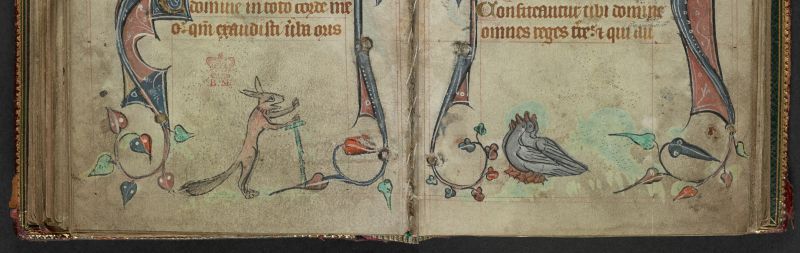 domine in toto corde me
o: qm̄ exaudisti v̄ba oris
B. M.
Confiteantur tibi domine
omnes reges tr̄e: ⁊ qui au